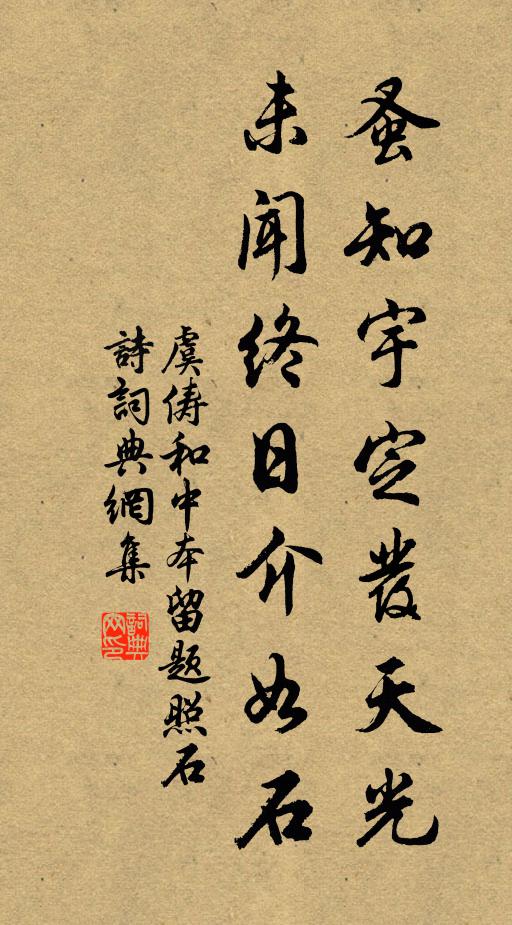 蚤知宇定發天光
未聞終日介如石
虞儔和中本留題照石
詩詞典網集
詞典網印